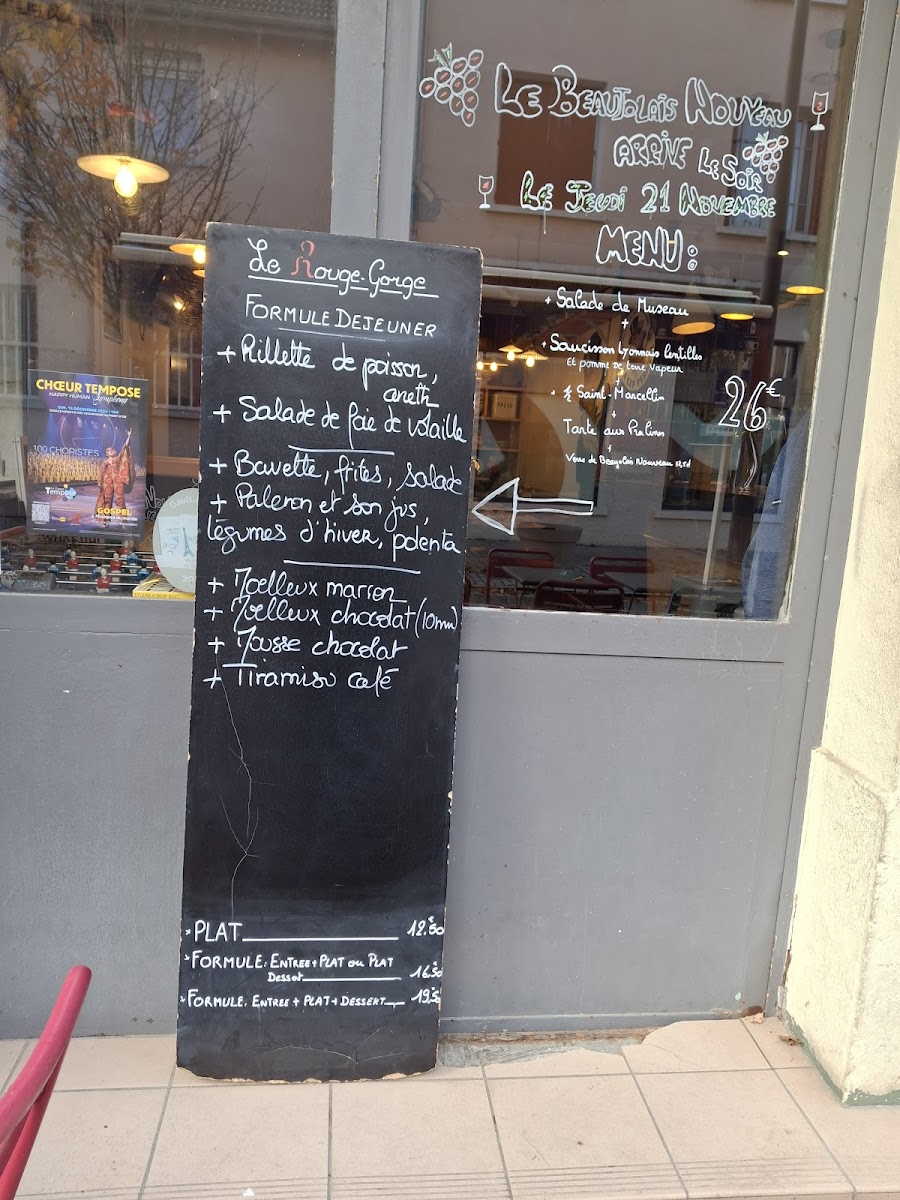 Le Rouge-Gorge
FORMULE DEJEUNER
+ Rillette de poisson,
aneth
+ Salade de foie de volaille
+ Bavette, frites, salade
+ Paleron et son jus,
légumes d'hiver, polenta
+ Moelleux marron
+ Moelleux chocolat (10mn)
+ Mousse chocolat
+ Tiramisu café
PLAT 12.50
FORMULE: ENTREE + PLAT ou PLAT
Dessert 16.50
FORMULE: ENTREE + PLAT + DESSERT 19.50
LE BEAUJOLAIS NOUVEAU
ARRIVE LE SOIR
LE JEUDI 21 NOVEMBRE
MENU:
+ Salade de Museau
+
+ Saucisson lyonnais lentilles
et pomme de terre vapeur
+
+ ½ Saint-Marcellin
+
Tarte aux Pralines
+
Verre de Beaujolais Nouveau
26€
CHŒUR TEMPOSE
HAPPY HUMAN Symphony
100 CHORISTES
Tempo
GOSPEL